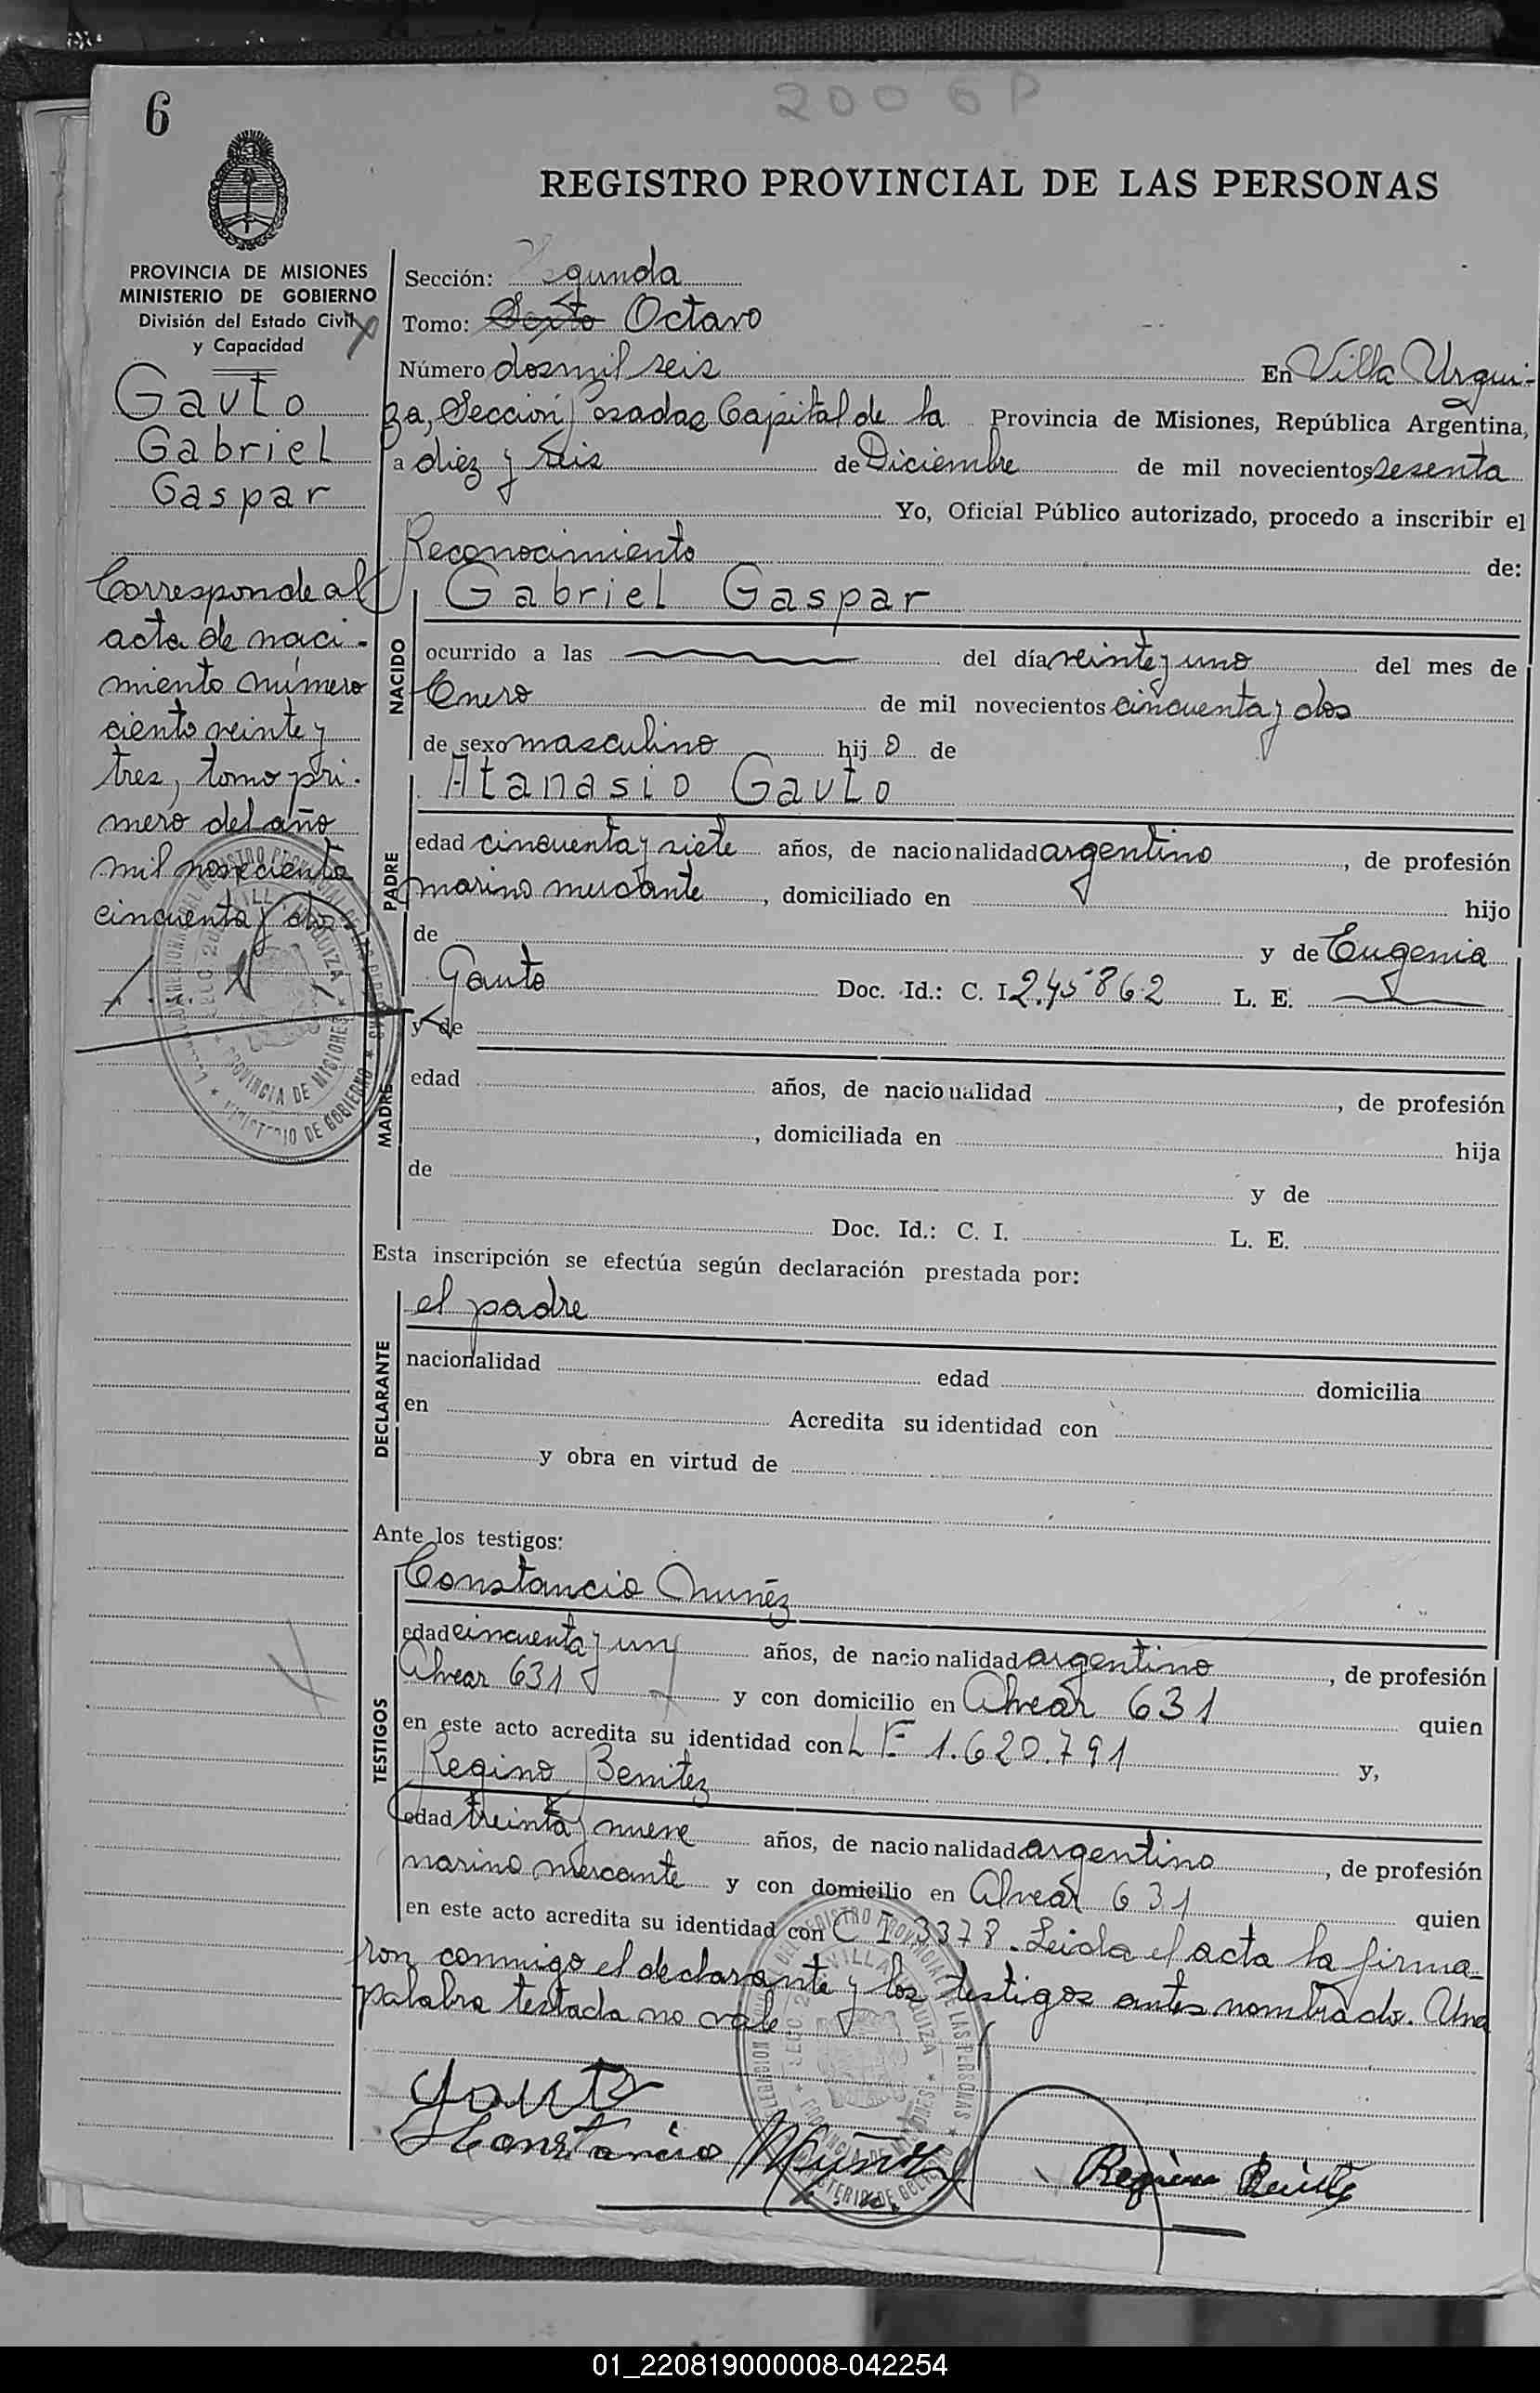 2006P
6
REGISTRO PROVINCIAL DE LAS PERSONAS
PROVINCIA DE MISIONES
MINISTERIO DE GOBIERNO
División del Estado Civil
y Capacidad
Gauto
Gabriel
Gaspar
Corresponde al
acta de naci-
miento número
ciento veinte y
tres, tomo pri-
mero del año
mil novecientos
cincuenta y dos
Sección: Segunda
Tomo: Sexto Octavo
Número dosmil seis En Villa Urqui-
za, Sección Posadas Capital de la Provincia de Misiones, República Argentina,
a diez y seis de Diciembre de mil novecientos sesenta
Yo, Oficial Público autorizado, procedo a inscribir el
Reconocimiento de:
NACIDO
Gabriel Gaspar
ocurrido a las del día veinte y uno del mes de
Enero de mil novecientos cincuenta y dos
de sexo masculino hijo de
PADRE
Atanasio Gauto
edad cincuenta y siete años, de nacionalidad argentino, de profesión
marino mercante, domiciliado en hijo
de y de Eugenia
Gauto Doc. Id.: C. I. 245862 L. E.
MADRE
y de
edad años, de nacionalidad, de profesión
, domiciliada en hija
de y de
Doc. Id.: C. I. L. E.
Esta inscripción se efectúa según declaración prestada por:
DECLARANTE
el padre
nacionalidad edad domicilia
en Acredita su identidad con
y obra en virtud de
Ante los testigos:
TESTIGOS
Constancio Nuñez
edad cincuenta y un años, de nacionalidad argentino, de profesión
Alvear 631 y con domicilio en Alvear 631 quien
en este acto acredita su identidad con L E 1.620.791 y,
Regino Benitez
edad treinta y nueve años, de nacionalidad argentino, de profesión
marino mercante y con domicilio en Alvear 631 quien
en este acto acredita su identidad con C I 3378. Leida el acta la firma-
ron conmigo el declarante y los testigos antes nombrado. Una
palabra testada no vale
Gauto
Constancio Muñoz
Regino Benitez
01_220819000008-042254